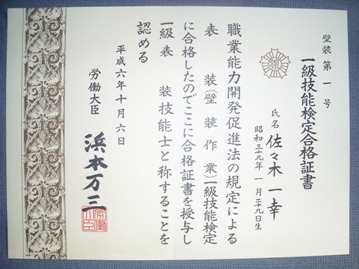 壁装第一号
一級技能検定合格証書
氏名 佐々木一幸
昭和三十九年一月二十九日生
職業能力開発促進法の規定による
表装(壁装作業)一級技能検定
に合格したのでここに合格証書を授与し
一級表装技能士と称することを
認める
平成六年十月六日
労働大臣 浜本万三